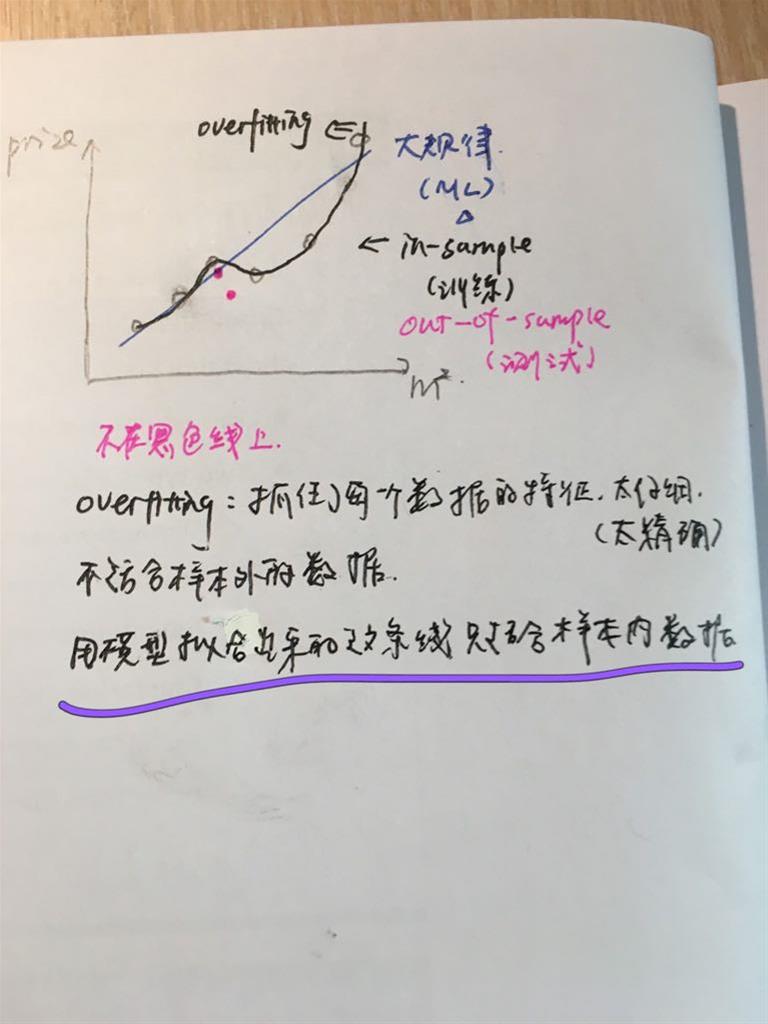 prize
overfitting
大规律.
(ML)
in-sample
(训练)
out-of-sample
(测试)
m².
不在黑色线上.
overfitting:抓住了每个数据的特征.太仔细.
(太精确)
不适合样本外的数据.
用模型拟合出来的这条线只适合样本内数据